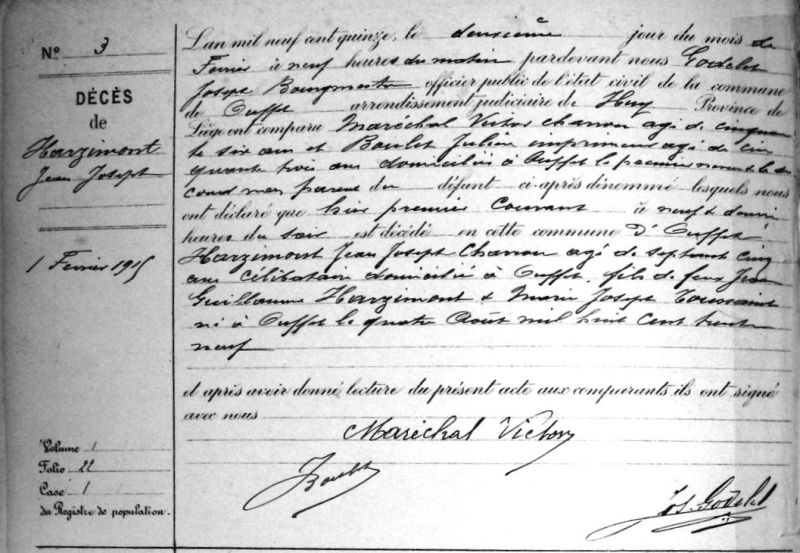 N° 3
DÉCÈS
de
Harzimont
Jean Joseph
1 Février 1915
Volume 1
Folio 22
Case 1
du Registre de population.
L'an mil neuf cent quinze, le deuxième jour du mois de
Février à neuf heures du matin pardevant nous Godelet
Joseph Bourgmestre officier public de l'état civil de la commune
de Ouffet arrondissement judiciaire de Huy Province de
Liège ont comparu Maréchal Victor charron agé de cinquan
te six ans et Boulet Julien imprimeur agé de cin
quante trois ans domiciliés à Ouffet le premier neveu le se
cond non parent du défunt ci-après dénommé lesquels nous
ont déclaré que hier premier courant à neuf & demi
heures du soir est décédé en cette commune d'Ouffet
Harzimont Jean Joseph Charron agé de septante cinq
ans célibataire domicilié à Ouffet, fils de feux Jean
Guillaume Harzimont & Marie Joseph Toussaint
né à Ouffet le quatre Août mil huit cent trente
neuf
et après avoir donné lecture du présent acte aux comparants ils ont signé
avec nous
Maréchal Victor
JBoulet
Jos. Godelet